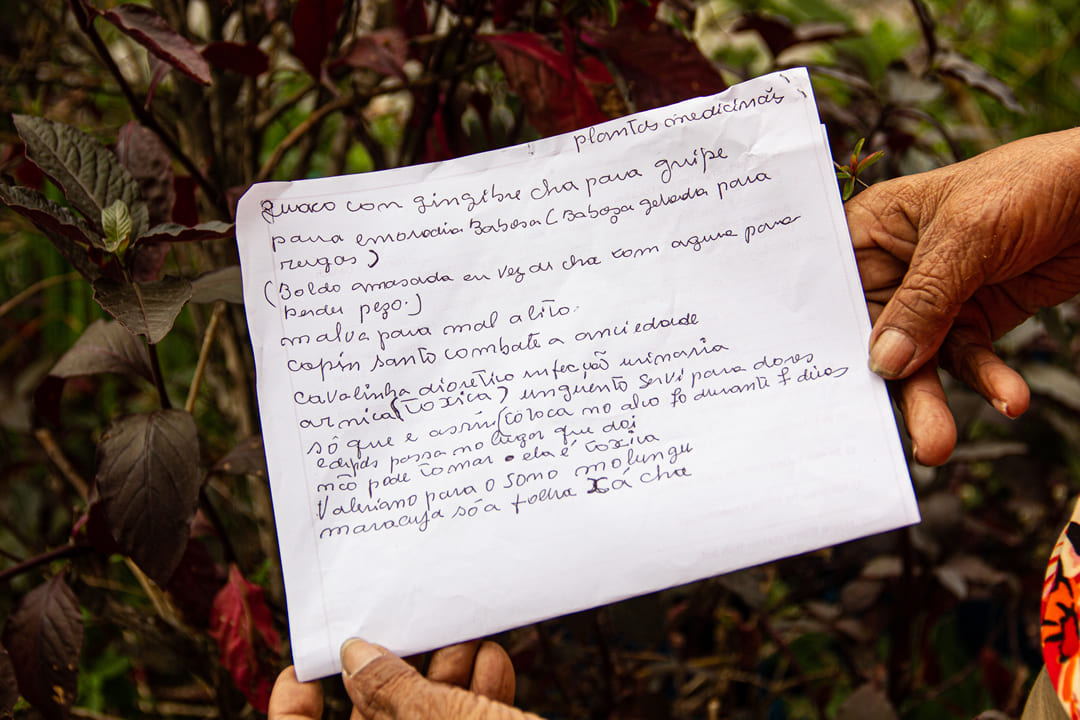 plantas medicinãs
guaco com gingibre cha para gripe
para emorodia Babosa (Baboza gelada para
rugas)
(Boldo amasada en vez di cha com agua para
perder pezo.)
malva para mal alito.
capin santo combate a anciedade
cavalinha dioretico infecção urinaria
arnica (toxica) unguento servi para dores
só que e assin (coloca no alco 70 durante 7 dias
e depds possa no lugar que doi
não pode tomar. ela é toxica
Valeriano para o sono molungu
maracuja só a folha xá cha